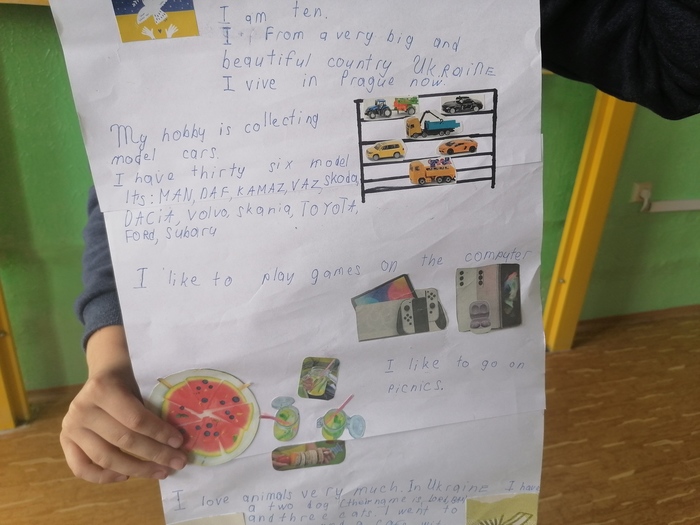 I am ten.
I From a very big and
beautiful country UKRAiNE
I vive in Prague now.
My hobby is collecting
model cars.
I have thirty six model
Its: MAN, DAF, KAMAZ, VAZ, Skoda,
DACiA, Volvo, skania, TOYOTA,
FORd, Subaru
I like to play games on the computer
I like to go on
picnics.
I love animals very much. In Ukraine I have
a two dog (their name is
and three cats. I went to